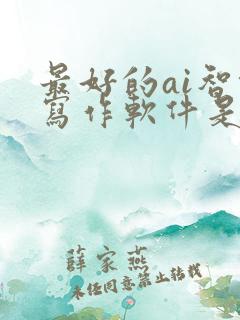 最好的ai智
寫作軟件是
薛家燕
未经同意禁止转载